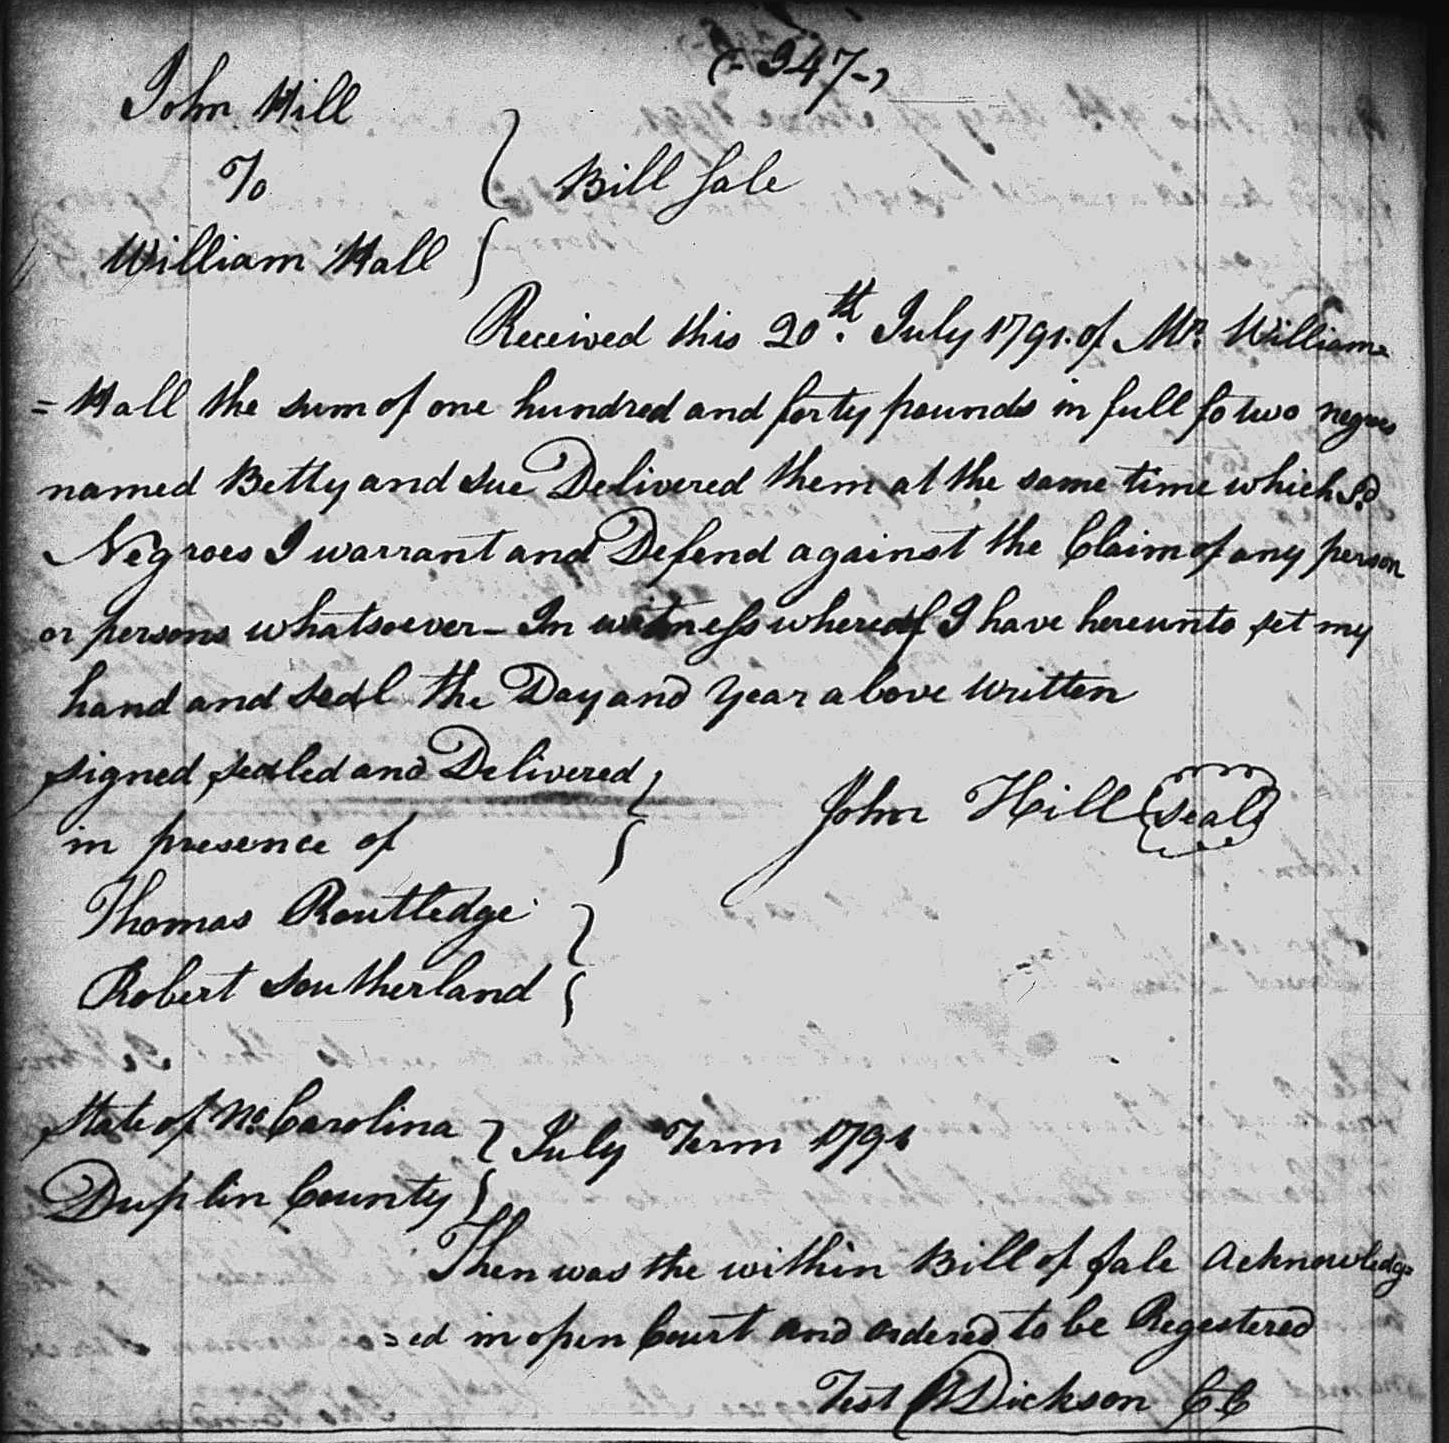 (-347-)
John Hill
To
Bill Sale
William Hall
Received this 20th. July 1791. of Mr. William
= Hall the sum of one hundred and forty pounds in full fo two negroes
named Betty and Sue Delivered them at the same time which Sd.
Negroes I warrant and Defend against the Claim of any person
or persons whatsoever - In witness whereof I have hereunto set my
hand and seal the Day and year above written
signed sealed and Delivered
in presence of
John Hill seal
Thomas Routledge
Robert Southerland
State of No. Carolina
July Term 1791
Duplin County
Then was the within Bill of sale Acknowledg=
=ed in open Court and ordered to be Regestered
Test Dickson CC